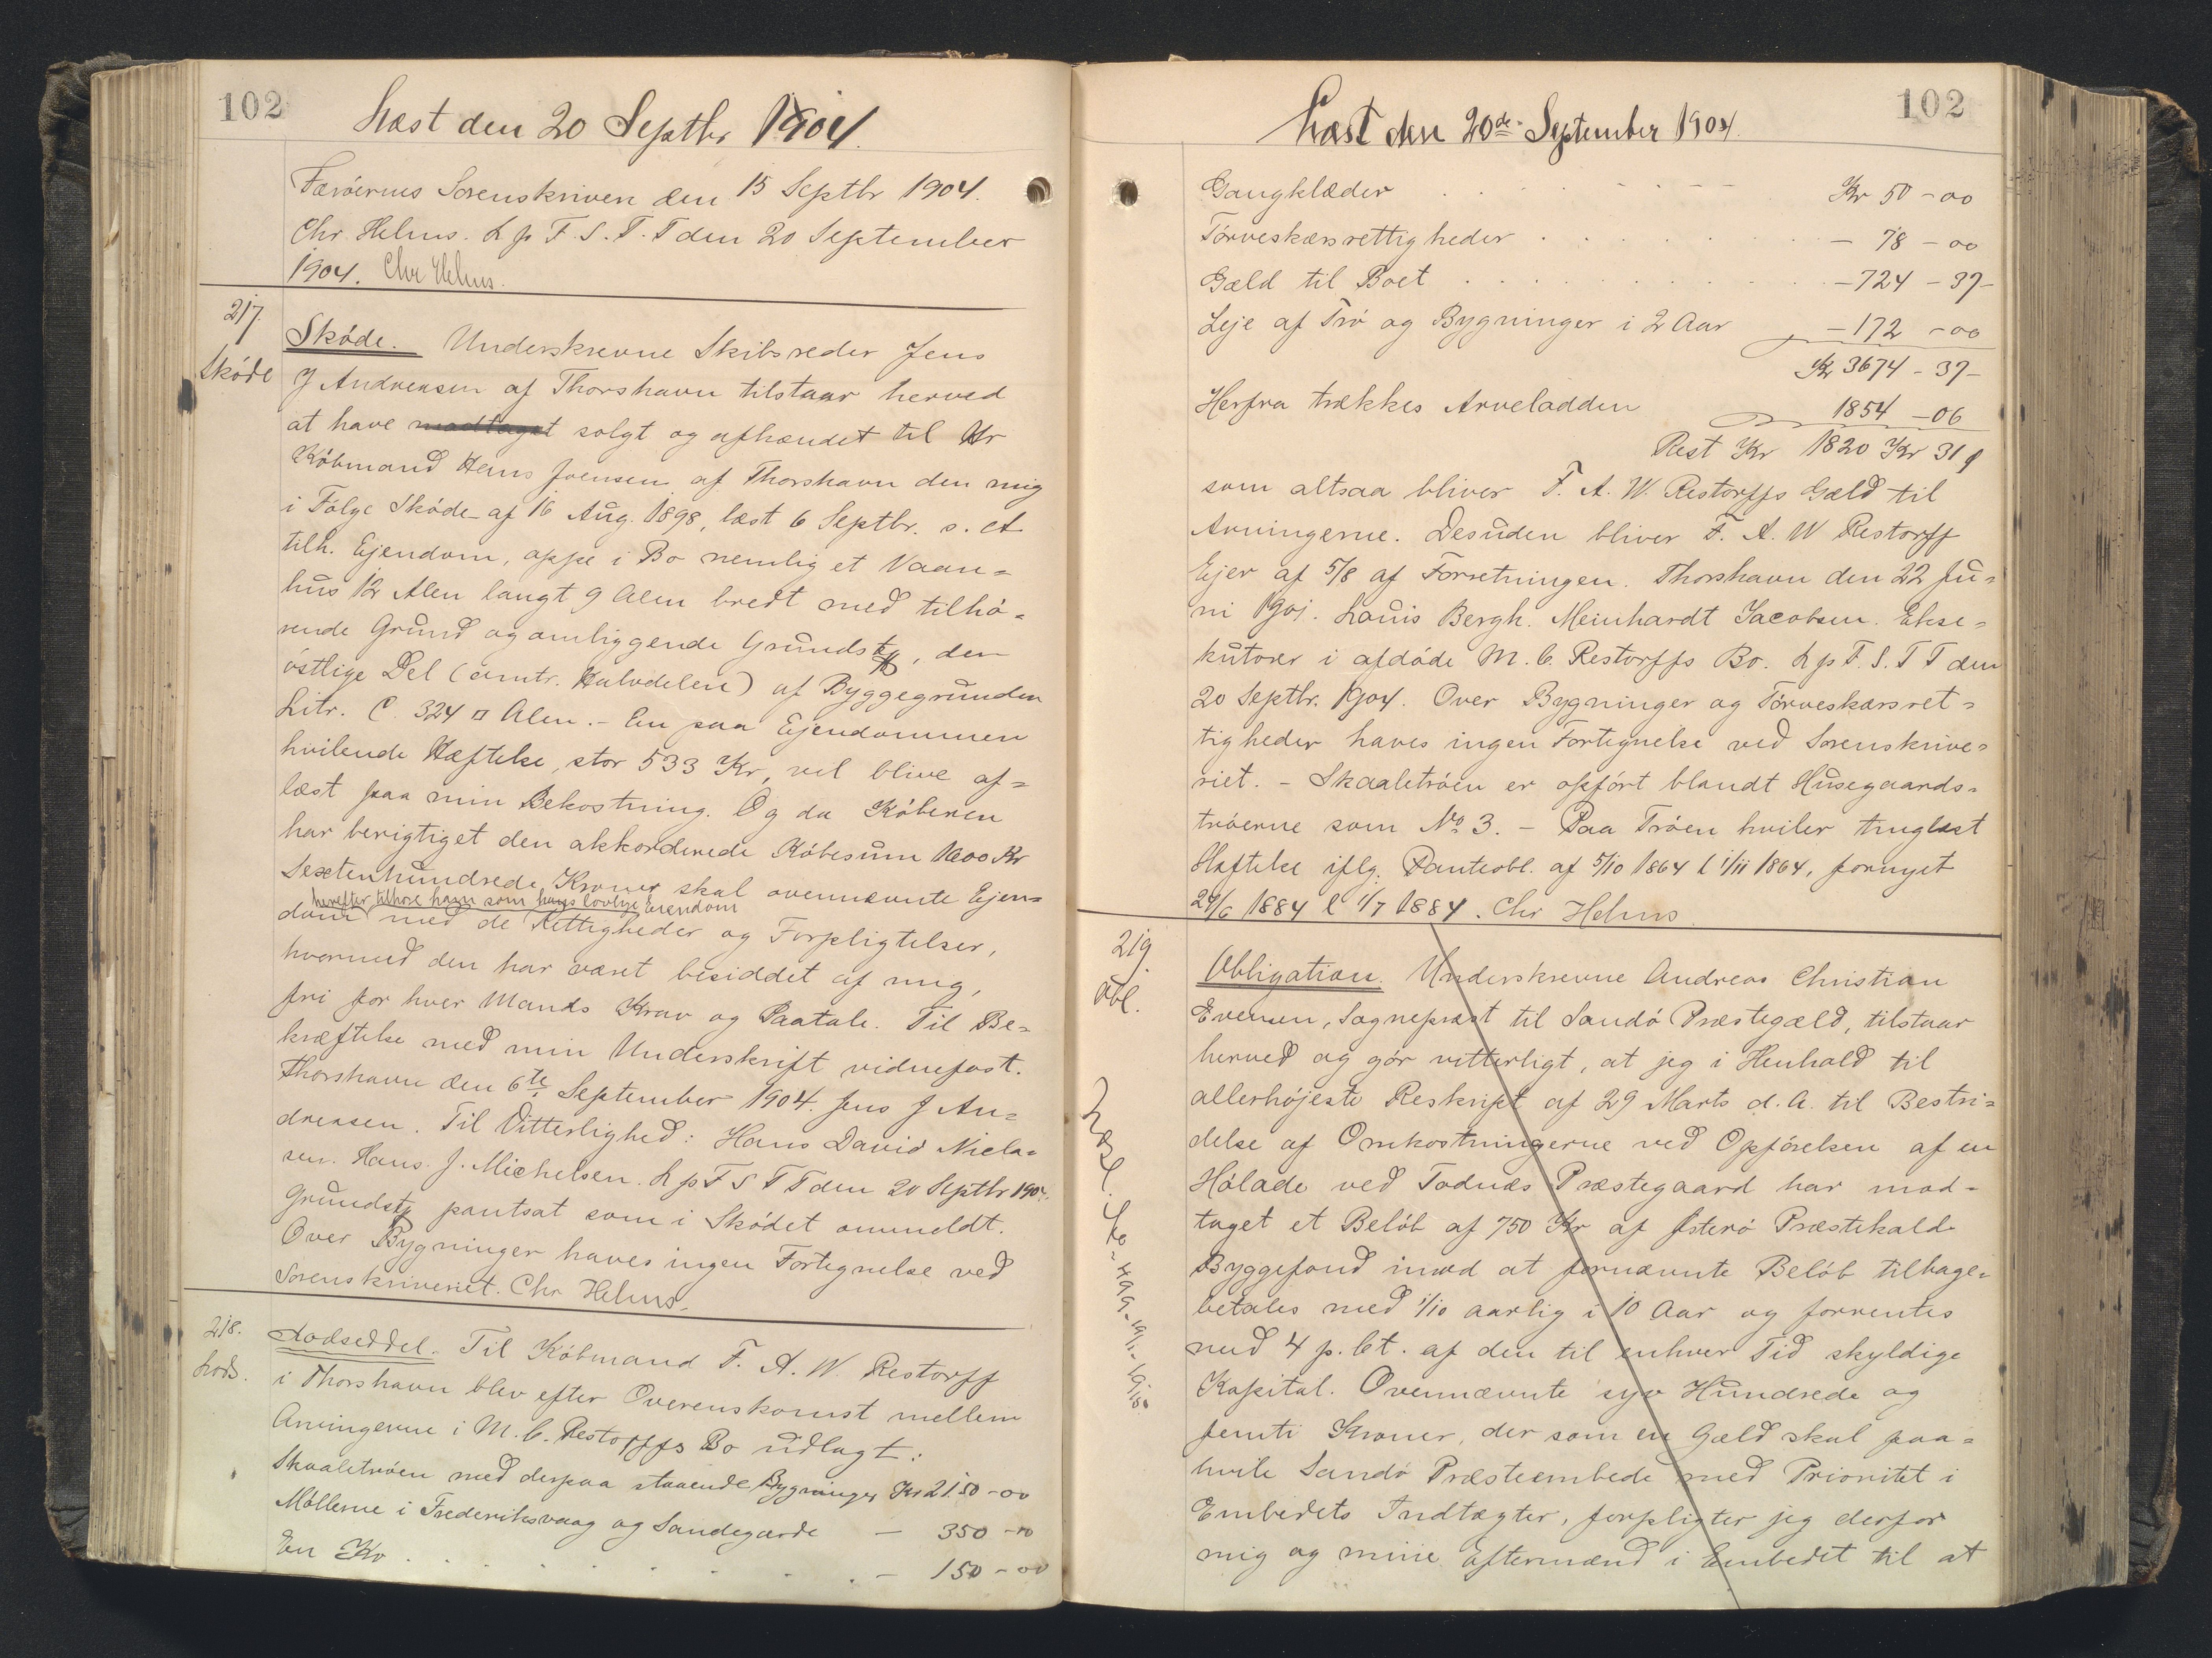 102
Læst den 20 Septbr 1904.
Færöernes Sorenskriveri den 15 Septbr 1904.
Chr. Helms. L p F. S. T. T den 20 September
1904. Chr Helms.
217.
Sköde
Sköde. Underskrevne Skibsreder Jens
J Andreasen af Thorshavn tilstaar herved
at have modtaget solgt og afhændet til Hr
Köbmand Hans Joensen af Thorshavn den mig
i Fölge Sköde af 16 Aug. 1898, læst 6 Septbr. s. A
tilh. Ejendom, oppe i Bo nemlig et Vaan=
hus 12 Alen langt 9 Alen bredt med tilhö=
rende Grund og omliggende Grundst, den
östlige Del (omtr. Halvdelen) af Byggegrunden
Litr. C. 324 □ Alen. - En paa Ejendommen
hvilende Hæftelse, stor 533 Kr, vil blive af=
læst paa min Bekostning. Og da Köberen
har berigtiget den akkorderede Köbesum 1600 Kr
Sextenhundrede Kroner skal ovennævnte Ejen=
herefter tilhöre ham som hans lovlige Eiendom
dom med de Rettigheder og Forpligtelser,
hvormed den har været besiddet af mig,
fri for hver Mands Krav og Paatale. Til Be=
kræftelse med min Underskrift vidnefast.
Thorshavn den 6te September 1904. Jens J An=
dreasen. Til Vitterlighed: Hans David Niela=
sen. Hans. J. Michelsen. L p F S T T den 20 Septbr 1904.
Grundst pantsat som i Sködet ommeldt.
Over Bygninger haves ingen Fortegnelse ved
Sorenskriveriet. Chr Helms.
218.
Lods.
Lodseddel. Til Köbmand F. A. W. Restorff
i Thorshavn blev efter Overenskomst mellem
Arvingerne i M. C. Restorffs Bo udlagt:
Skaaletröen med derpaa staaende Bygninger Kr 2150-00
Möllerne i Frederiksvaag og Sandegærde - 350-00
En Ko . . . . . . . - 150-00
102
Læst den 20de September 1904.
Gangklæder . . . . . Kr 50-00
Törveskærsrettigheder . . . . . - 78-00
Gæld til Boet . . . . . - 724-37-
Leje af Trö og Bygninger i 2 Aar - 172-00
Kr 3674-37-
Herfra trækkes Arveladden 1854-06
Rest Kr 1820 Kr 31 ø
som altsaa bliver F. A. W. Restorffs Gæld til
Arvingerne. Desuden bliver F. A. W Restorff
Ejer af 5/8 af Forretningen. Thorshavn den 22 Ju=
ni 1901. Louis Bergh. Meinhardt Jacobsen. Ekse=
kutorer i afdöde M. C. Restorffs Bo. L p F. S. T T den
20 Septbr. 1904. Over Bygninger og Törveskærsret=
tigheder haves ingen Fortegnelse ved Sorenskrive=
riet. - Skaaletröen er opfört blandt Husegaards=
tröerne som No 3. - Paa Tröen hviler tinglæst
Hæftelse iflg. Panteobl. af 5/10 1864 l 1/11 1864, fornyet
24/6 1884 l 1/7 1884. Chr Helms
219.
Obl.
Obligation. Underskrevne Andreas Christian
Evensen, Sognepræst til Sandö Præstegæld, tilstaar
herved og gör vitterligt, at jeg i Henhold til
allerhöjeste Reskript af 29 Marts d. A. til Bestri=
delse af Omkostningerne ved Opförelsen af en
Hölade ved Todnæs Præstegaard har mod=
taget et Belöb af 750 Kr af Österö Præstekalds
Byggefond imod at fornævnte Belöb tilbage=
betales med 1/10 aarlig i 10 Aar og forrentes
med 4 p. Ct. af den til enhver Tid skyldige
Kapital. Ovennævnte syv Hundrede og
femti Kroner, der som en Gæld skal paa=
hvile Sandö Præsteembede med Prioritet i
Embedets Indtægter, forpligter jeg derfor
mig og mine Eftermænd i Embedet til at